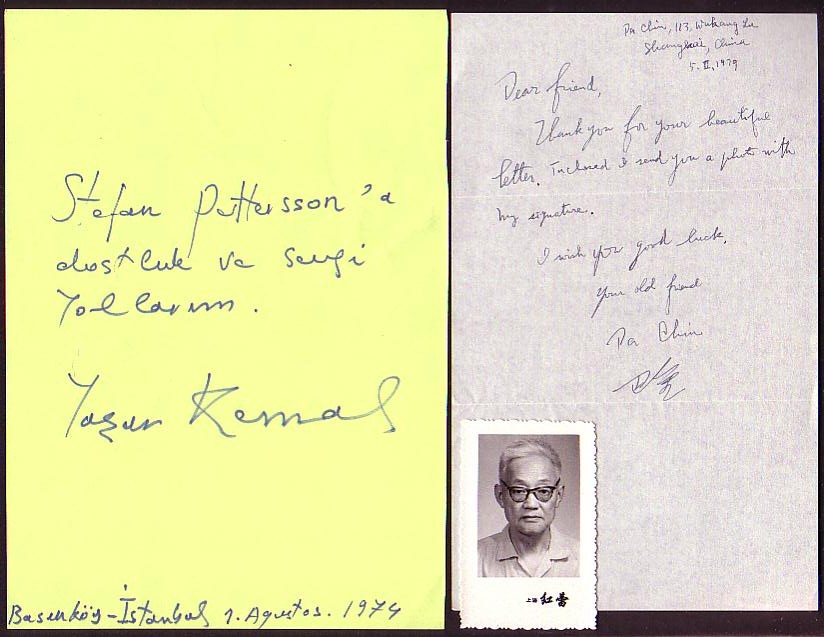 Stefan Pettersson'a
dostluk ve sevgi
Yollarım.
Yaşar Kemal
Basınköy - İstanbul 1. Agustos. 1974
Pa Chin, 113, Wukang Lu
Shanghai, China
5. II, 1979
Dear friend,
Thank you for your beautiful
letter. Inclosed I send you a photo with
my signature.
I wish you good luck.
Your old friend
Pa Chin
巴金
上海 红蕾